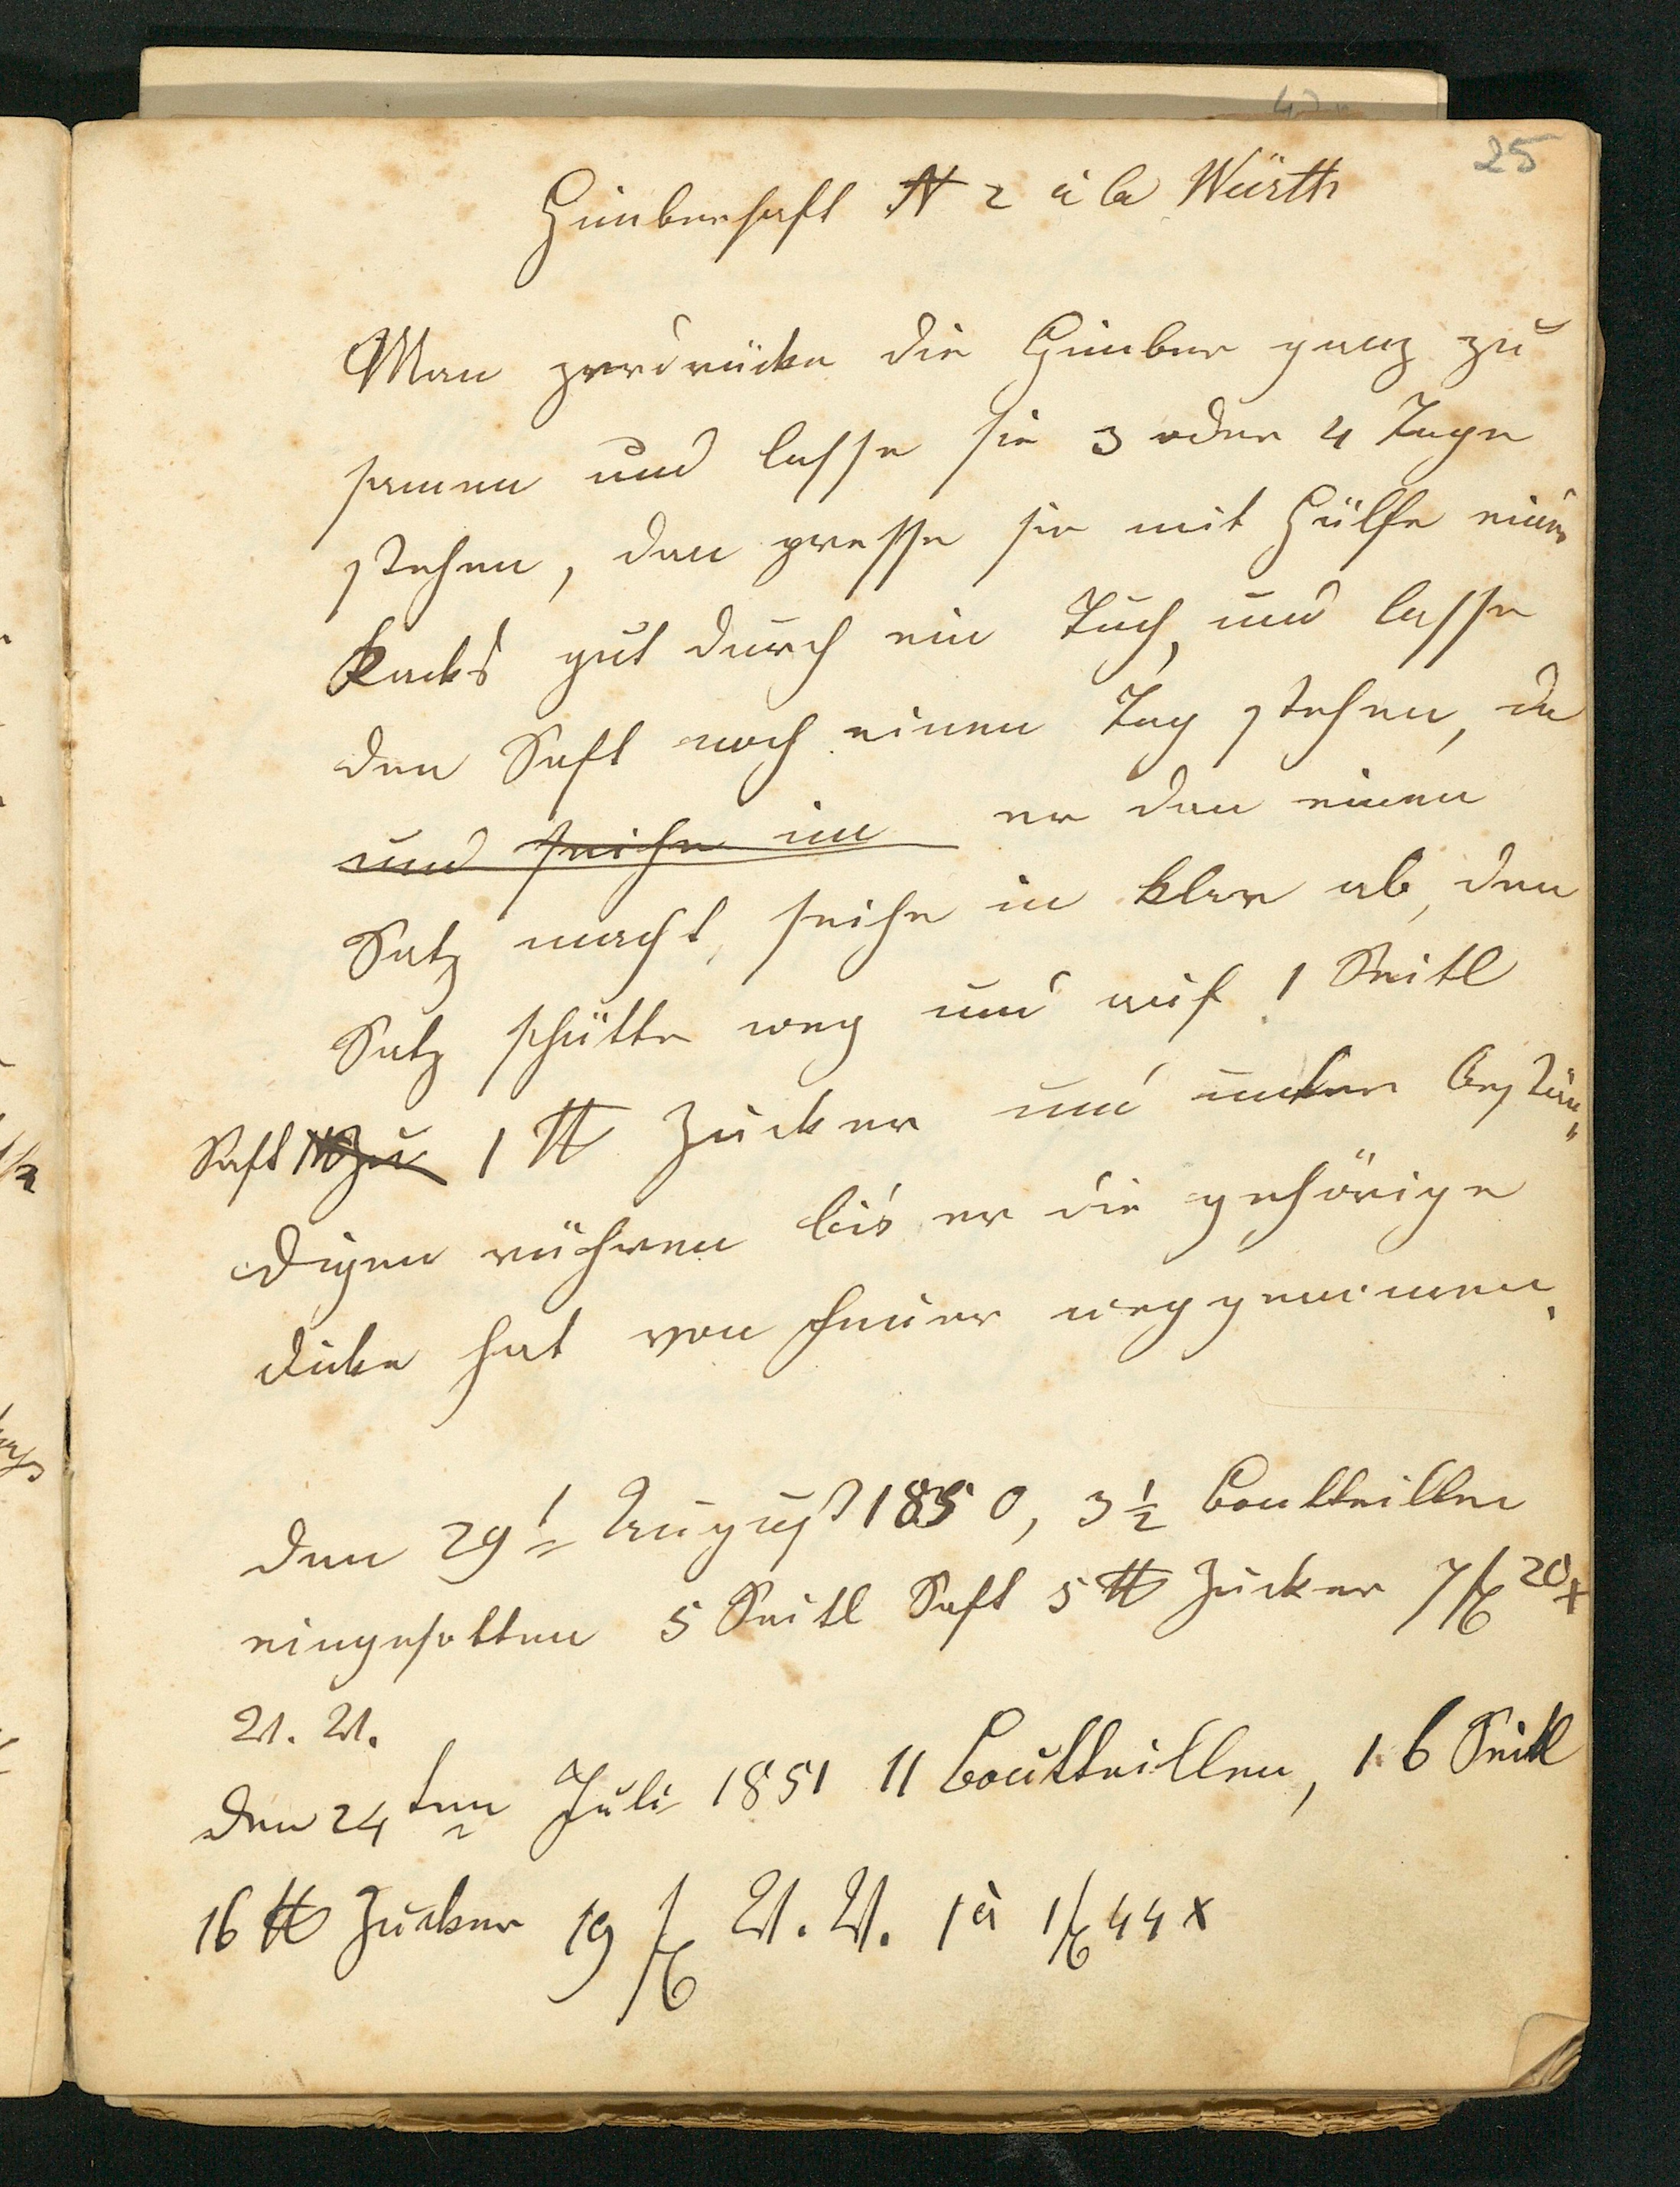 25
Himbersaft N 2 à la Würth
Man zerdrücke die Himber ganz zu
samen und lasse sie 3 oder 4 Tage
stehen, dan presse sie mit Hülfe eines
gut durch ein Tuch, und lasse
den Saft noch einen Tag stehen, da
und seihe in er dan einen
Satz macht, seihe in klar ab, den
Satz schütte weg und auf 1 Seitl
Saft 1 ℔ Zucker und unter bestän„
digen rühren bis er die gehörige
dicke hat von Feuer weggenomen.
den 29t August 1850, 3 ½ Boutteillen
eingesotten 5 Seitl Saft 5 ℔ Zucker 7 fl 20 x
W. W.
den 24ten Juli 1851 11 Boutteillen, 16 Seitl
16 ℔ Zucker 19 fl W. W. 1 à 1 fl 44 x